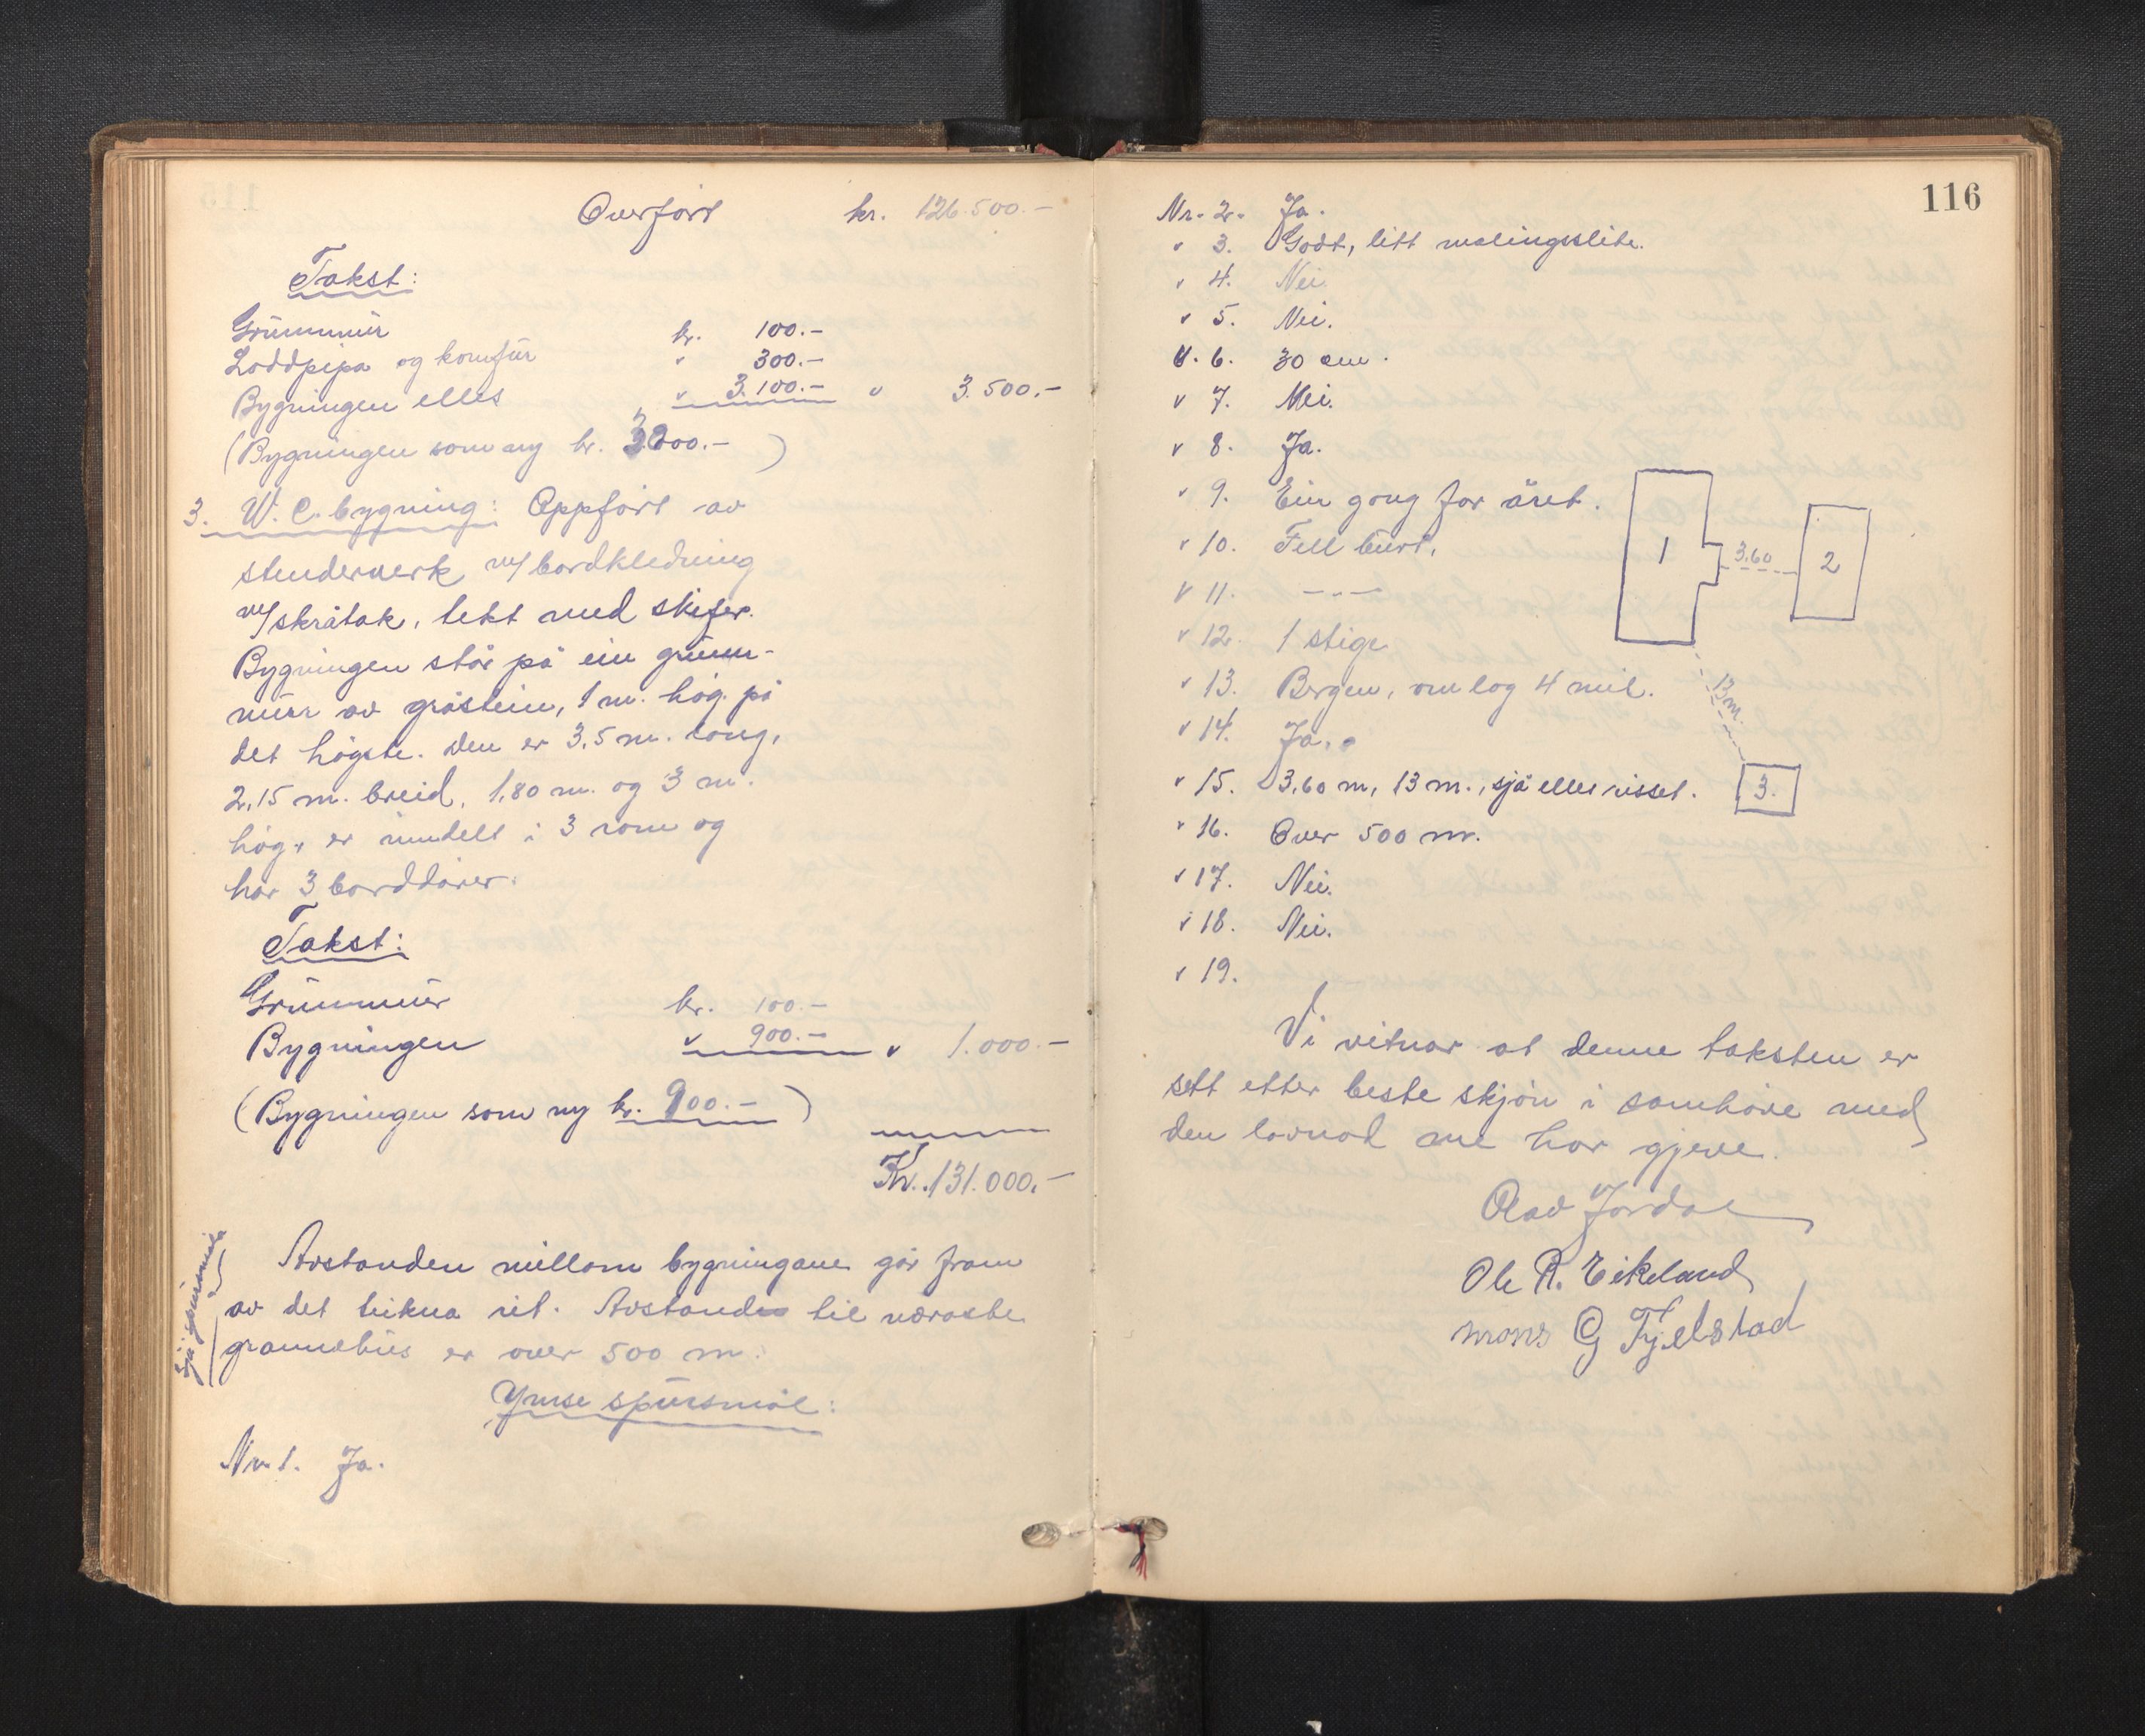 Overført kr. 126.500.-
Takst:
Grunnmur kr. 100.-
Loddpipa og komfur " 300.-
Bygningen elles " 3.100.- " 3.500.-
(Bygningen som ny kr. 3.200.- )
3. W.C. bygning: Oppført av
stenderverk m/ bordkledning
m/ skråtak, tekt med skifer.
Bygningen står på ein grunn-
mur av gråstein, 1 m. høg. på
det høgste. Den er 3,5 m. lang,
2,15 m. breid, 1,80 m. og 3 m.
høg, er inndelt i 3 rom og
har 3 borddører.
Takst:
Grunnmur kr. 100.-
Bygningen " 900.- " 1.000.-
(Bygningen som ny kr. 900.- )
Kr. 131.000.-
Sjå
Avstanden millom bygningane går fram
av det teikna rit. Avstanden til næraste
grannehus er over 500 m.
Ymse spursmål:
Nr. 1. Ja.
116
Nr. 2. Ja.
" 3. Godt, litt malingsslite.
" 4. Nei.
" 5. Nei.
" 6. 30 cm.
" 7. Nei.
" 8. Ja.
" 9. Ein gong for året.
" 10. Fell burt.
" 11. -"-
" 12. 1 stige
" 13. Bergen, om lag 4 mil.
" 14. Ja.
" 15. 3,60 m, 13 m., sjå elles risset.
" 16. Over 500 m.
" 17. Nei.
" 18. Nei.
" 19.
1 3.60 2
13 m.
3.
Vi vitnar at denne taksten er
sett etter beste skjøn i samhøve med
den lovnad me har gjeve.
Olav Jordal
Ole R. Eikeland
Mons G Fjelstad